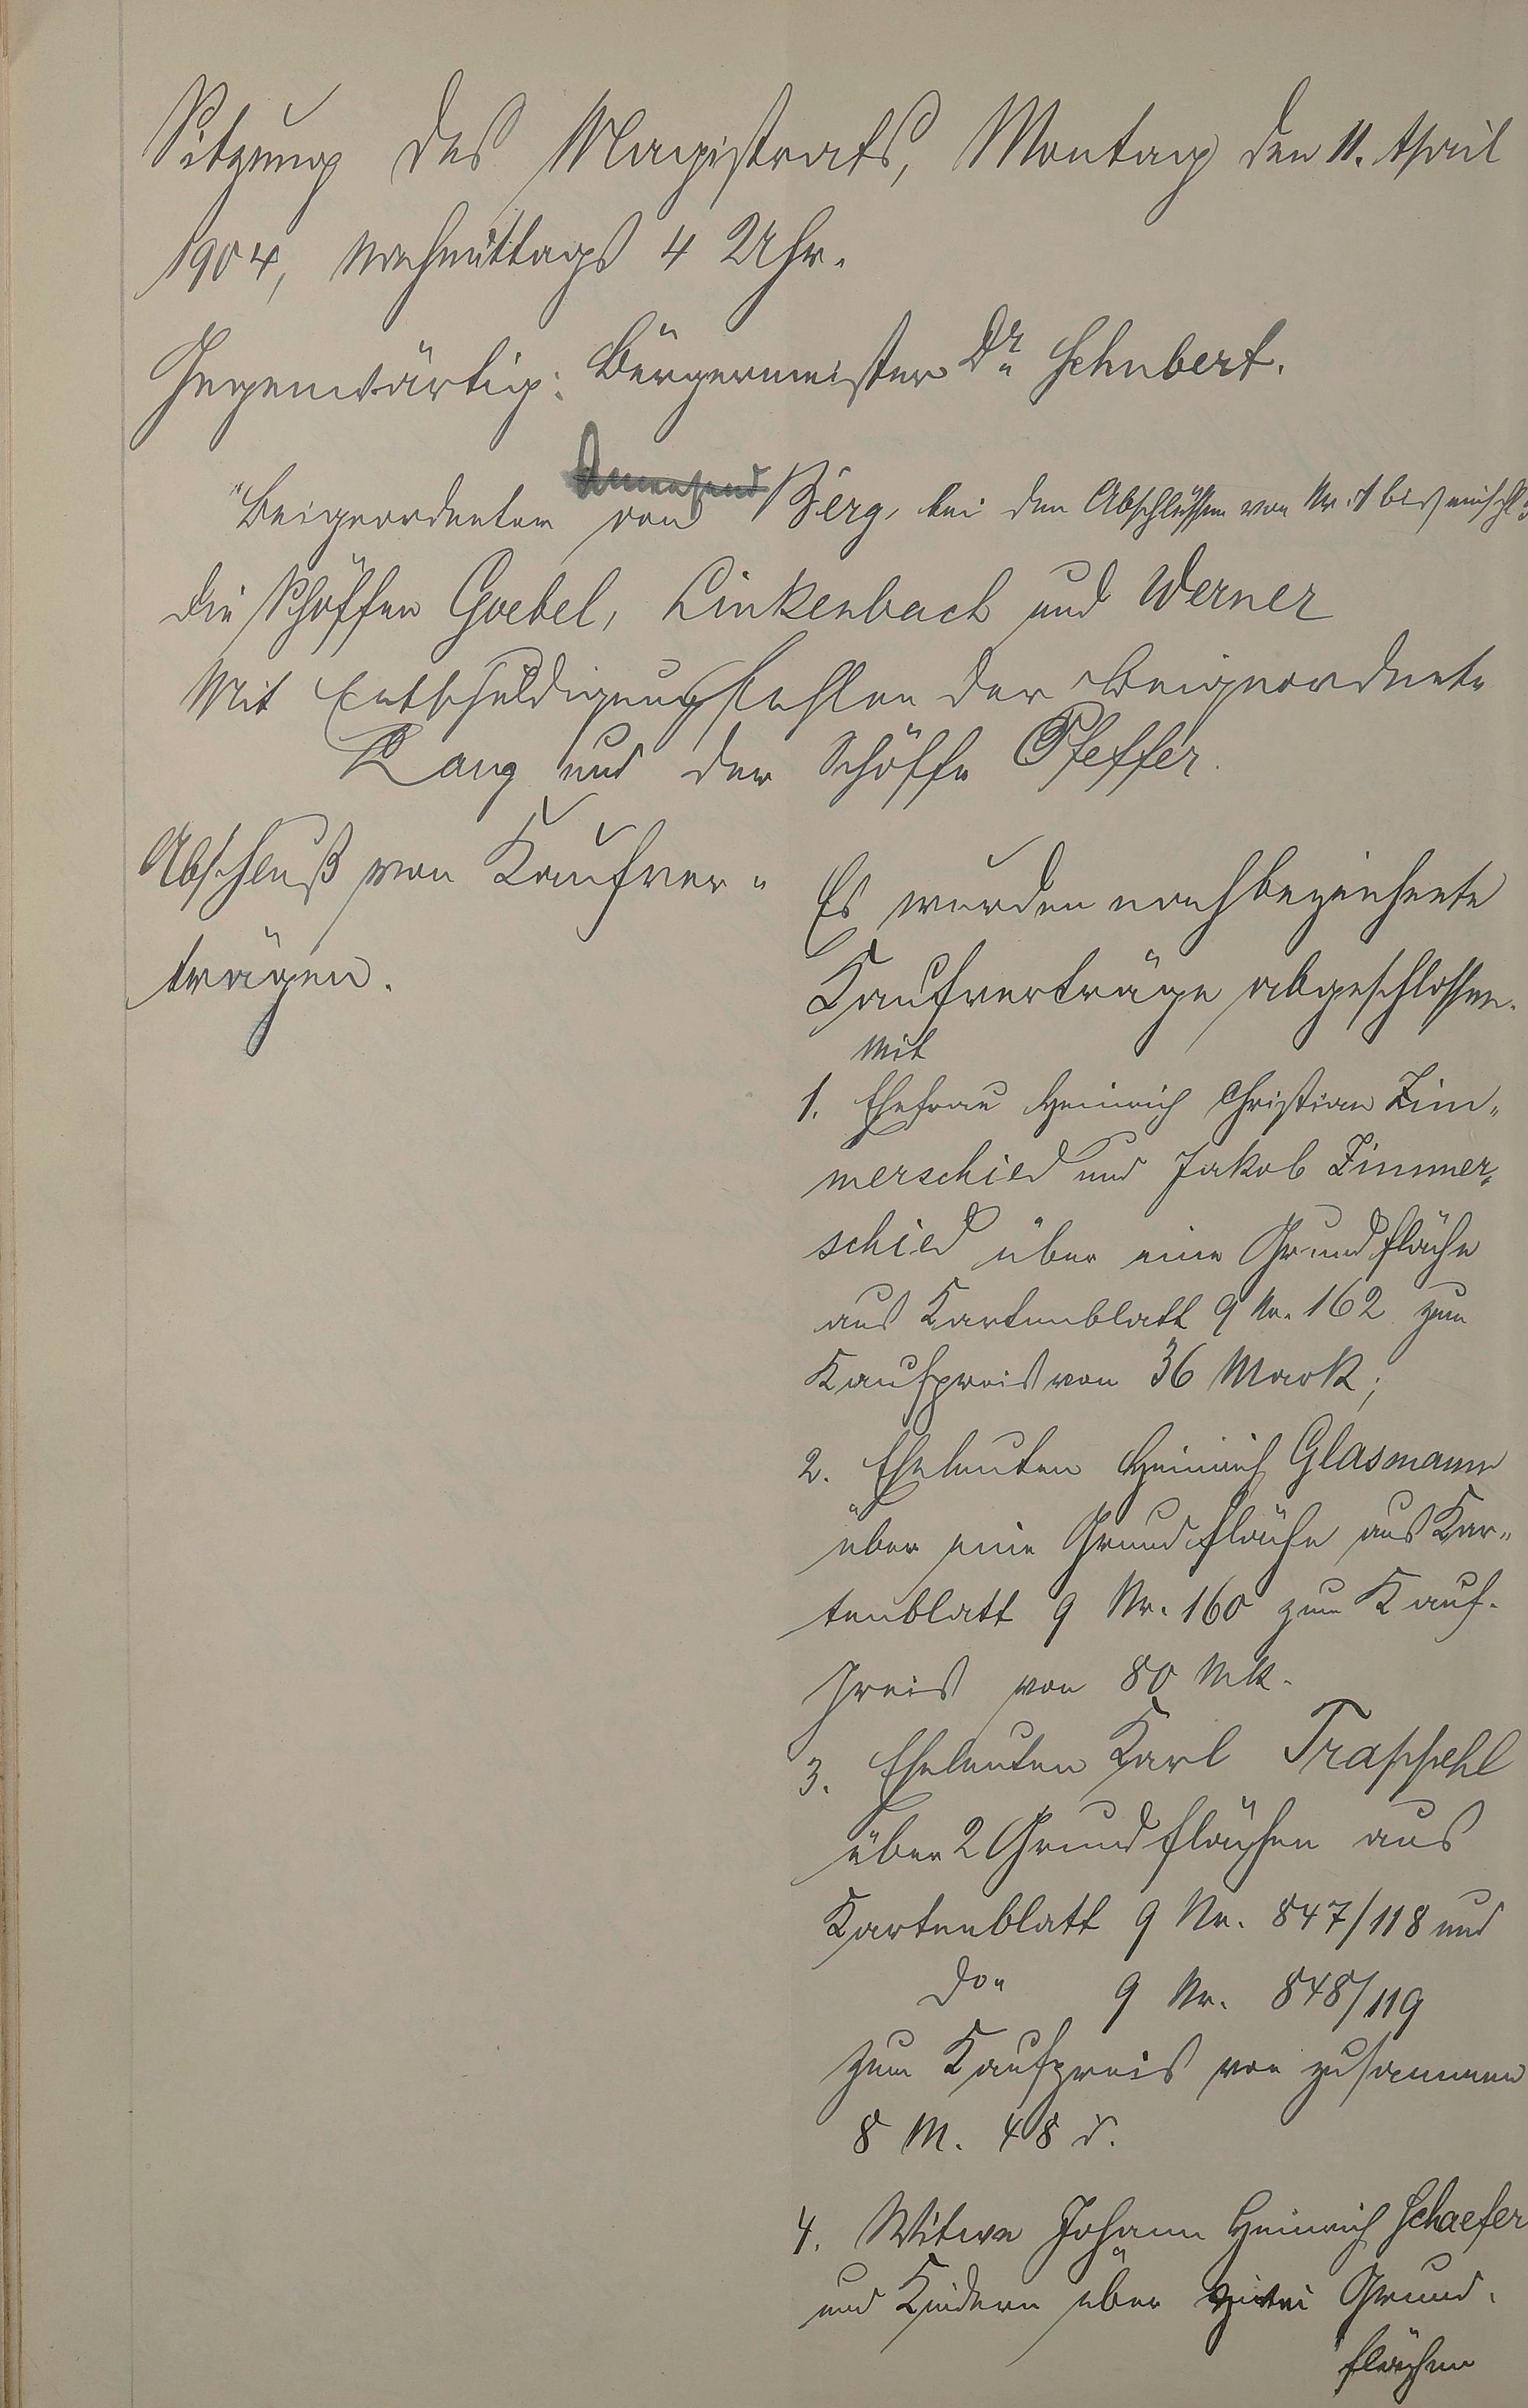 Sitzung des Magistrats, Montag den 11. April
1904, Nachmittags 4 Uhr.
Gegenwärtig: Bürgermeister Dr. Schubert.
Anwesend
Beigeordneter von Berg, bei den Abschlüssen von Nr. 1 bis einschl.
die Schöffen Goebel, Linkenbach und Werner
Mit Entschuldigung fehlen der Beigeordnete
Lang und der Schöffe Pfeffer.
Abschluß von Kaufver-
trägen.
Es wurden nachbezeichnete
Kaufverträge abgeschlossen.
mit
1. Ehefrau Heinrich Christian Zim-
merschied und Jakob Zimmer-
schied über eine Grundfläche
aus Kartenblatt 9 Nr. 162 zum
Kaufpreis von 36 Mark;
2. Eheleuten Heinrich Glasmann
über eine Grundfläche aus Kar-
tenblatt 9 Nr. 160 zum Kauf-
preis von 80 Mk.
3. Eheleuten Karl Trappehl
über 2 Grundflächen aus
Kartenblatt 9 Nr. 847/118 und
do. 9 Nr. 848/119
zum Kaufpreis von zusammen
8 M. 48 ₰.
4. Witwe Johann Heinrich Schaefer
und Kindern über zwei Grund-
flächen